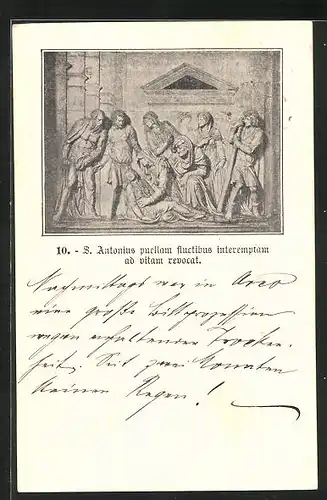 10. - S. Antonius puellam fluctibus interemptam
ad vitam revocat.
Nachmittags war in Arco
eine große Bittprozession
wegen anhaltender Trocken-
heit. Seit zwei Monaten
keinen Regen!